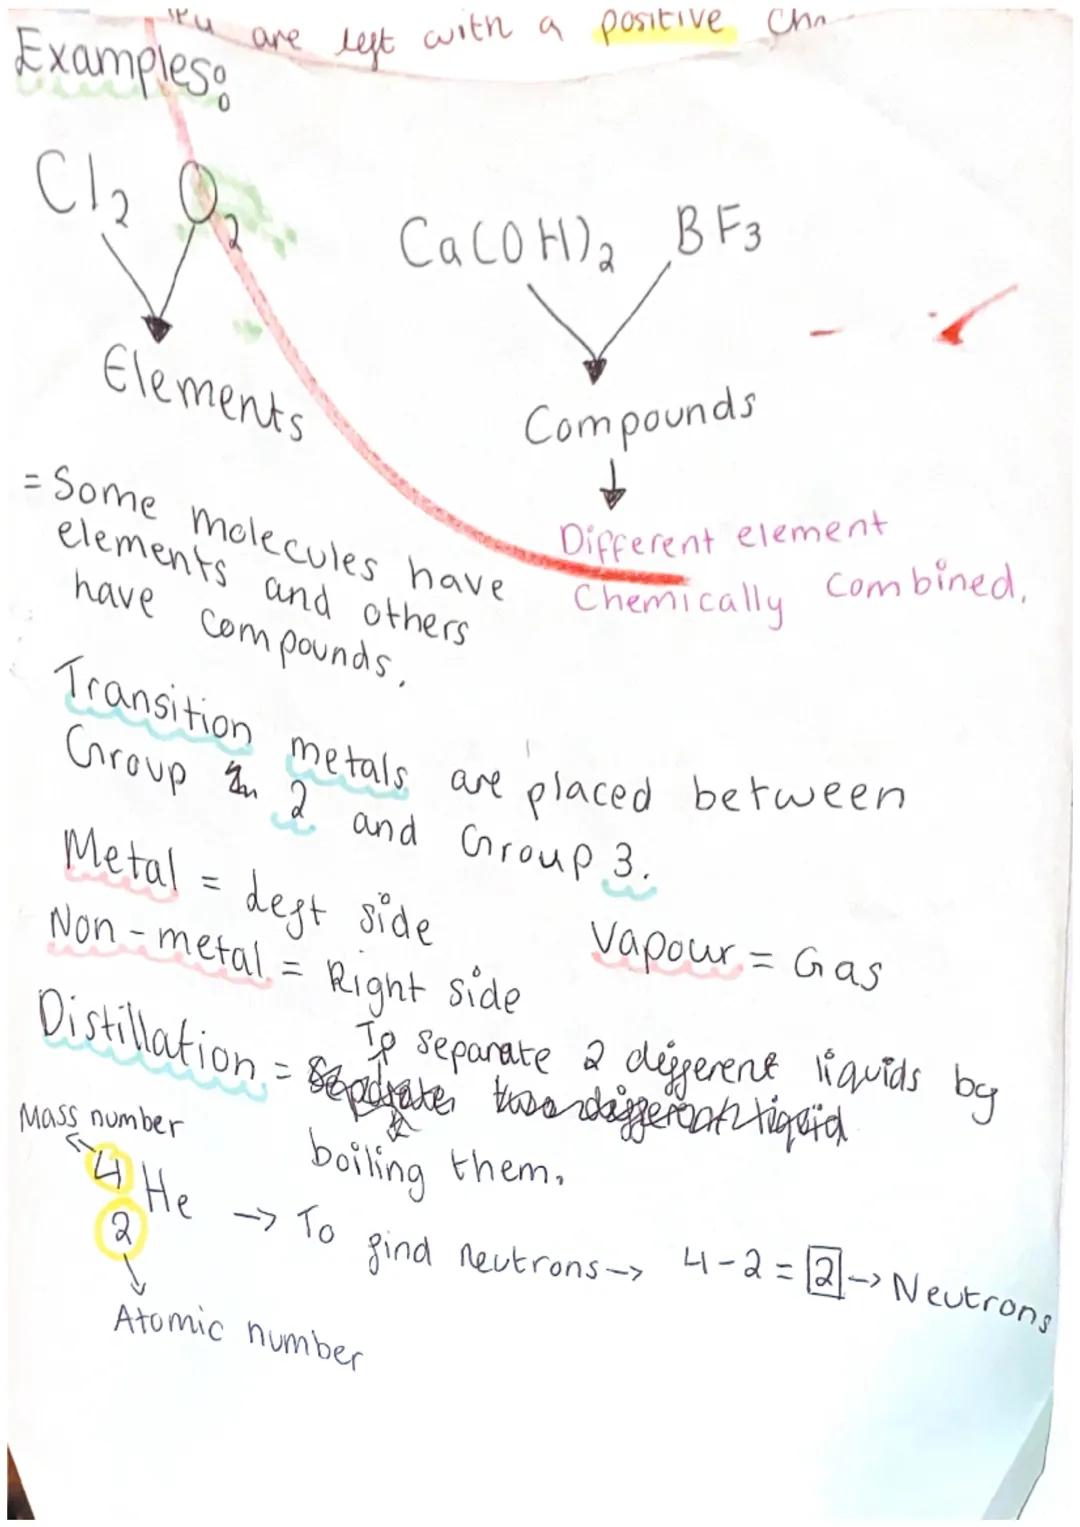 are left with a positive
Examples:
Cl2 O2
Ca(OH)2 BF3
Elements
Compounds
Different element
Chemically combined.
= Some molecules have
elements and others
have compounds.
Transition metals are placed between
Group 2 and Group 3.
Metal = left side
Non-metal = Right side
Vapour = Gas
Distillation = To separate 2 different liquids by
Separate two different liquid
boiling them.
Mass number
4
2 He → To find neutrons → 4-2 = 2 → Neutrons
Atomic number